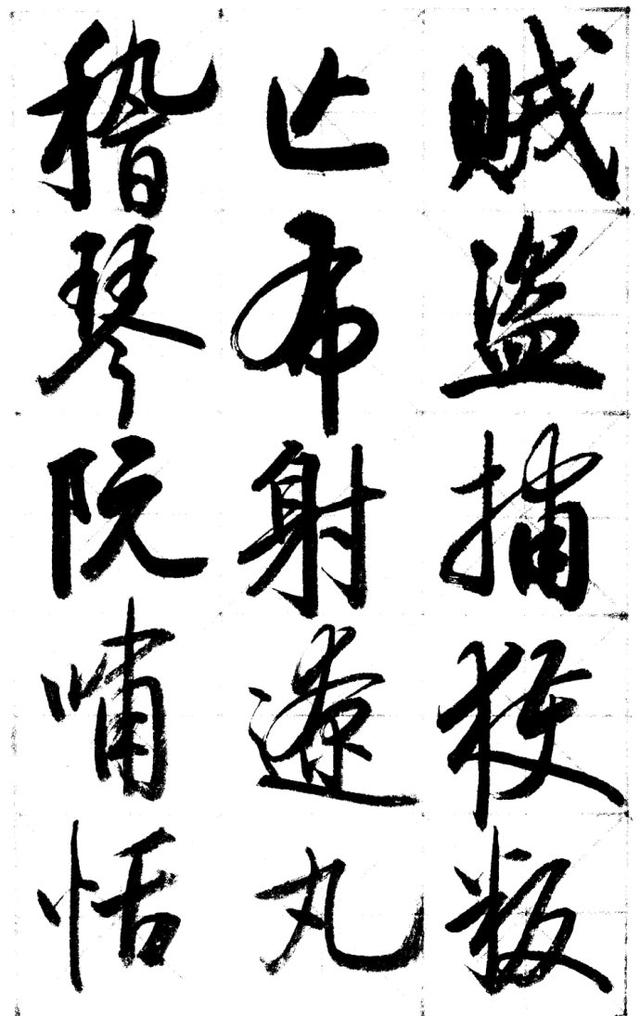 賊盜捕獲叛
亡布射遼丸
稽琴阮嘯恬